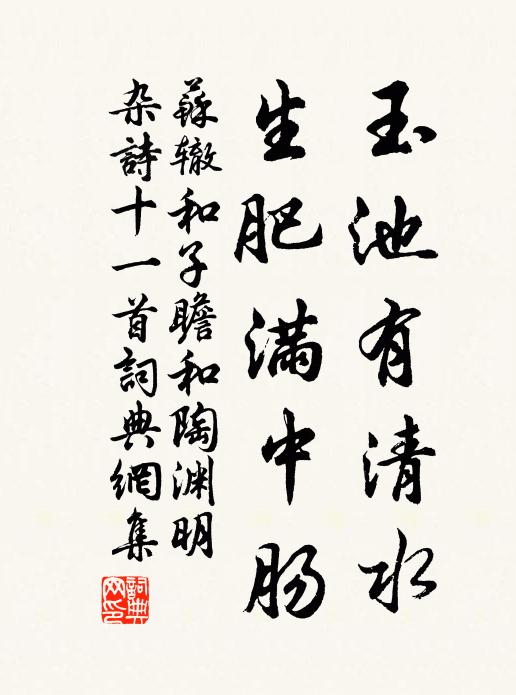 玉池有清水
生肥满中肠
蘇辙和子瞻和陶渊明
杂詩十一首詞典網集
詞典网印